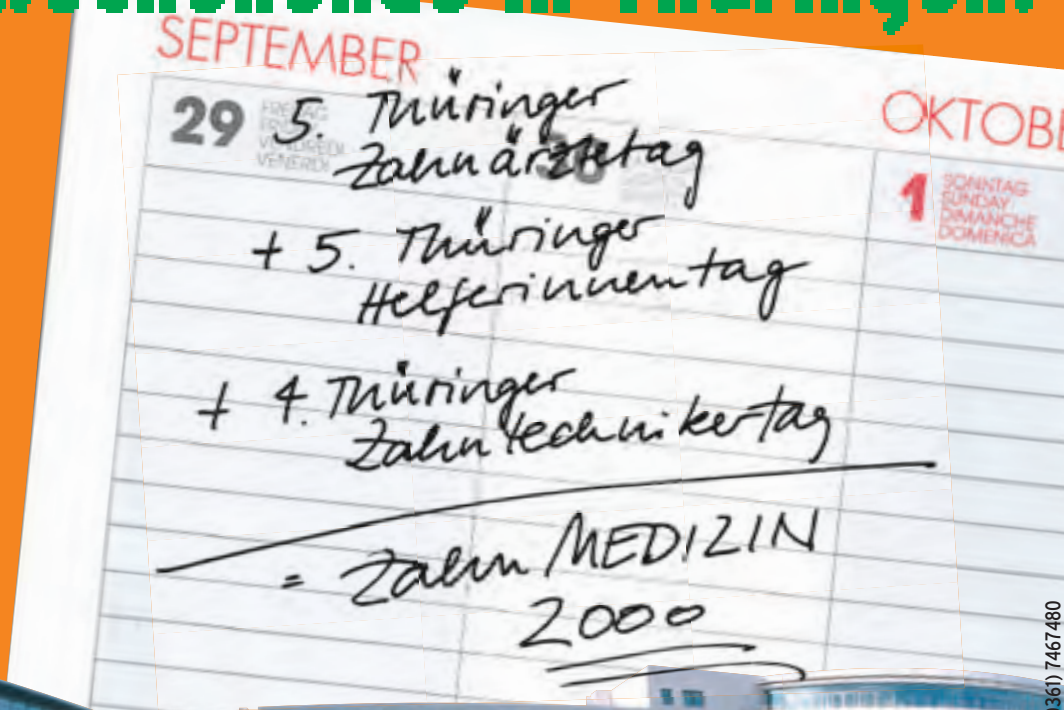 in Thüringen
SEPTEMBER
29
FREITAG
VENDREDI
VENERDI
5. Thüringer
Zahnärztetag
30
+ 5. Thüringer
Helferinnentag
+ 4. Thüringer
Zahntechnikertag
= Zahn MEDIZIN
2000
OKTOBE
1
SONNTAG
SUNDAY
DIMANCHE
DOMENICA
0361) 7467480